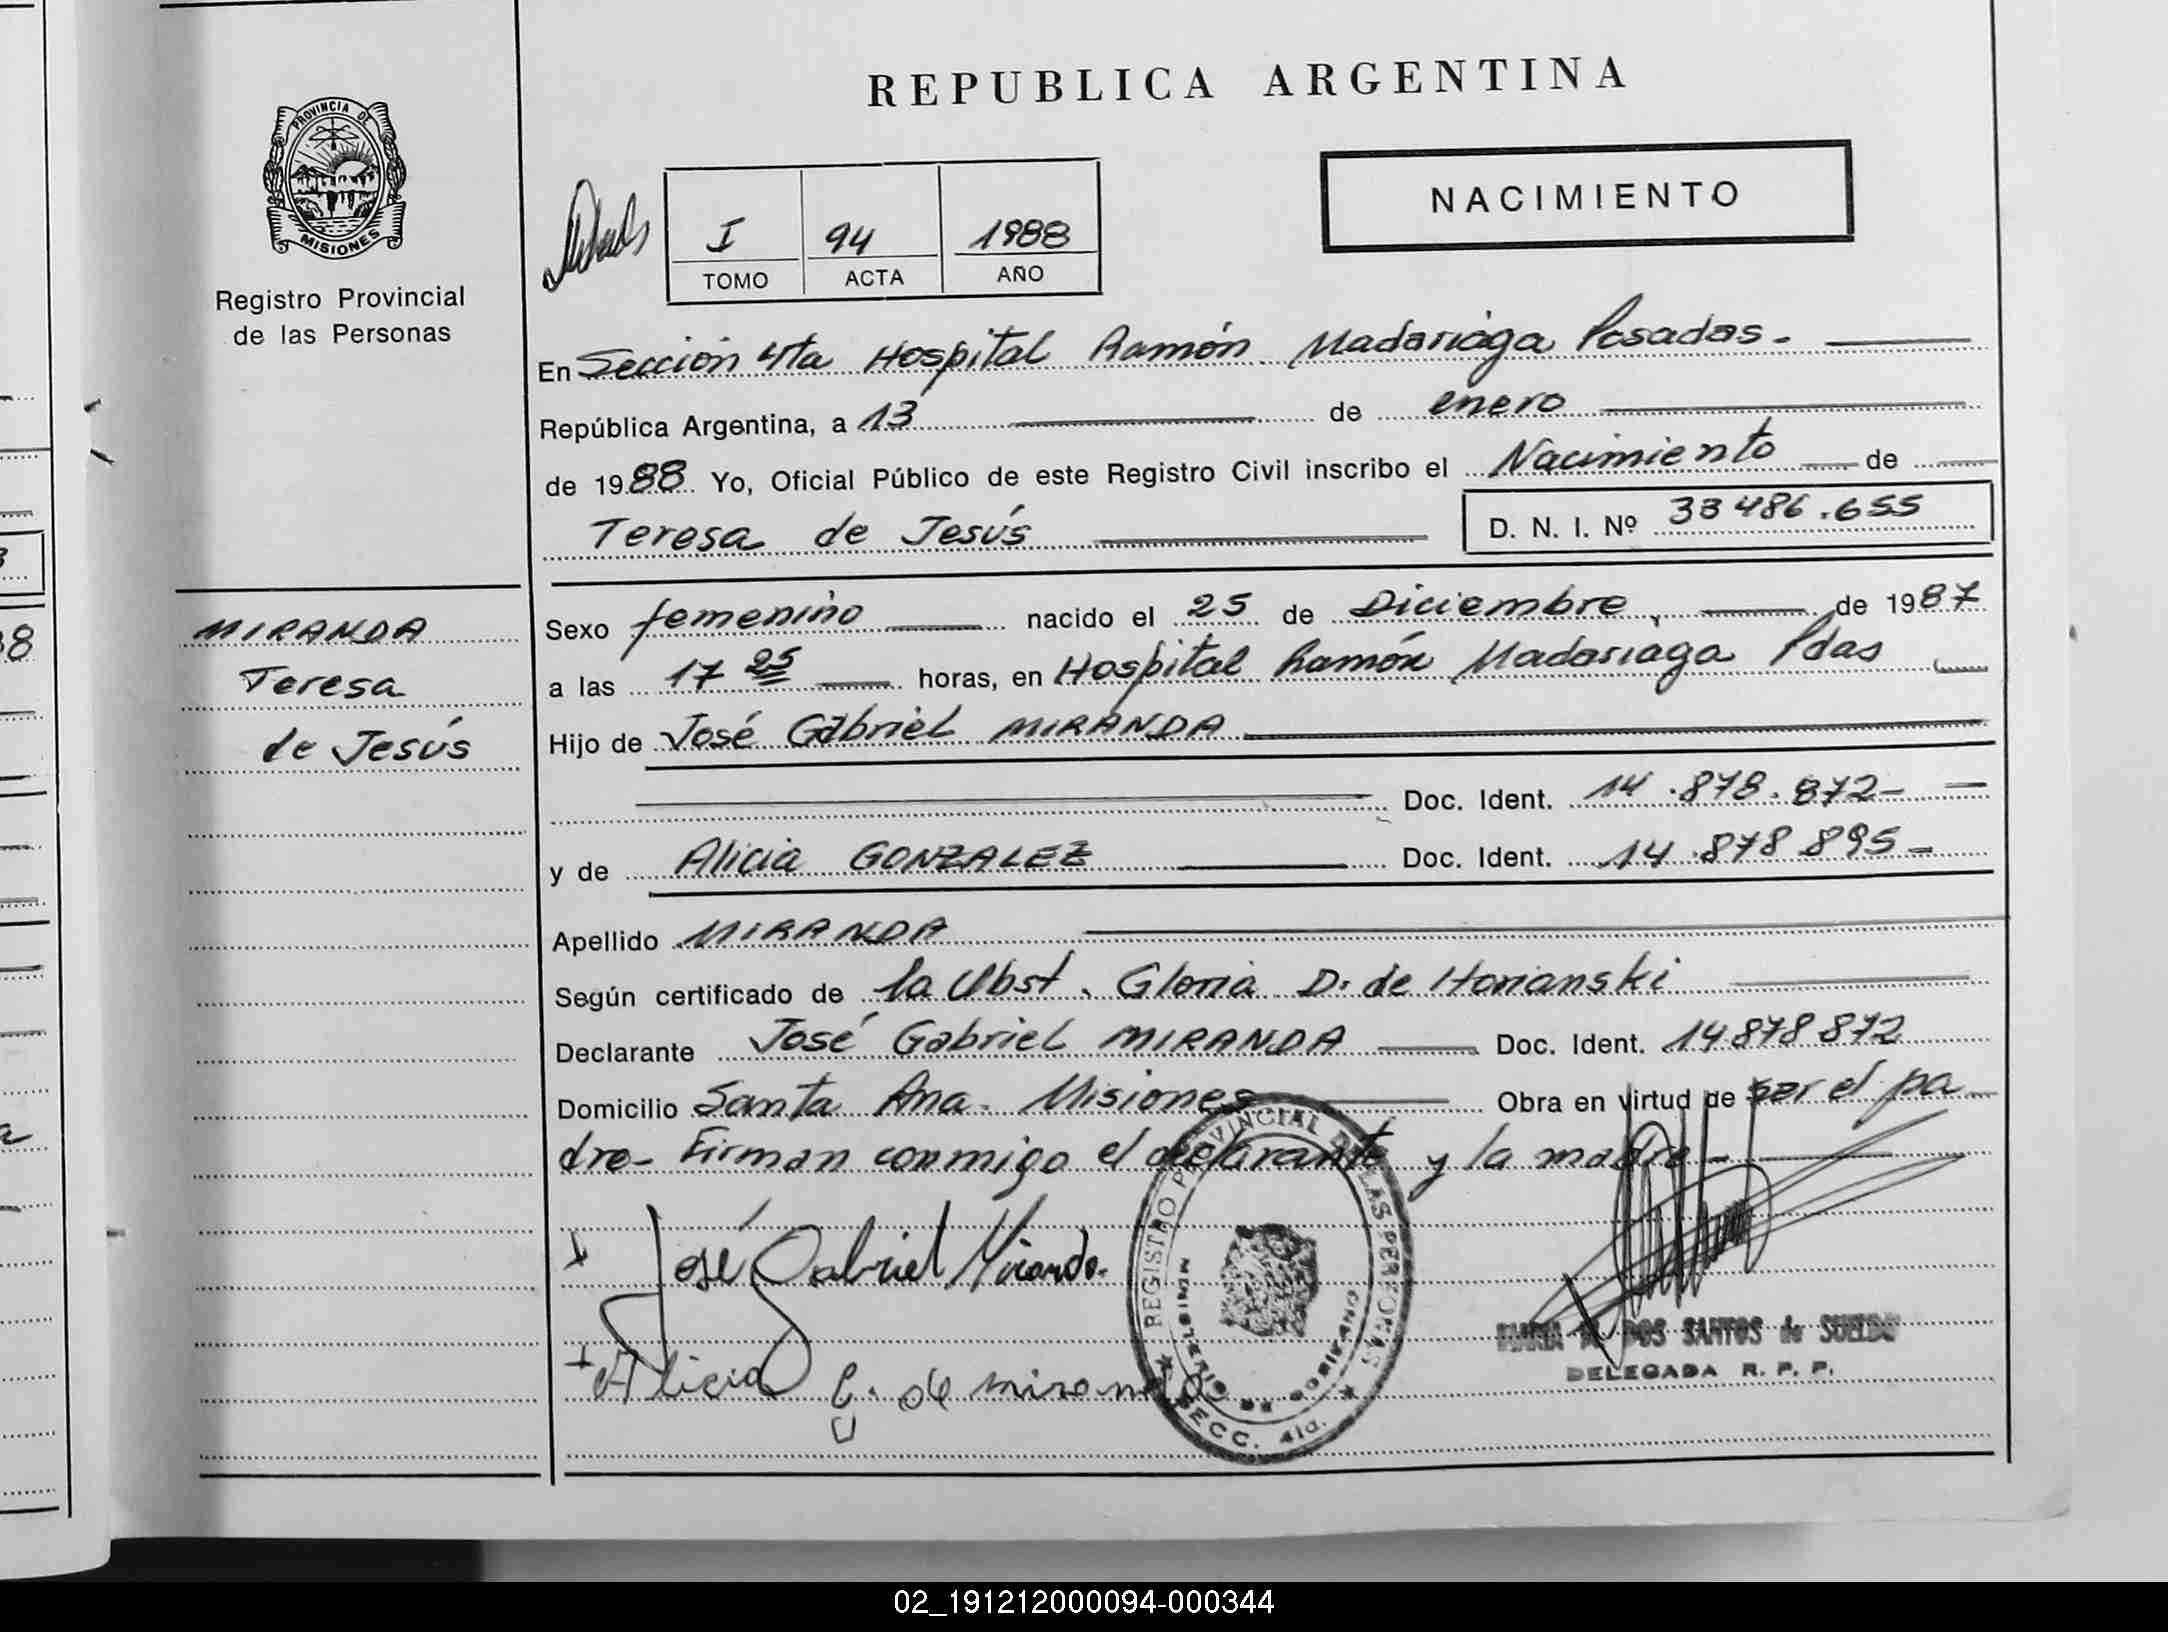 REPUBLICA ARGENTINA
PROVINCIA DE
MISIONES
Registro Provincial
de las Personas
NACIMIENTO
I 94 1988
TOMO ACTA AÑO
En Sección 4ta Hospital Ramón Madariaga Posadas.
República Argentina, a 13 de enero
de 1988 Yo, Oficial Público de este Registro Civil inscribo el Nacimiento de
Teresa de Jesús D. N. I. Nº 33486.655
MIRANDA
Teresa
de Jesús
Sexo femenino nacido el 25 de Diciembre de 1987
a las 17 25 horas, en Hospital Ramón Madariaga Pdas
Hijo de José Gabriel MIRANDA
Doc. Ident. 14.878.872-
y de Alicia GONZALEZ Doc. Ident. 14.878 895-
Apellido MIRANDA
Según certificado de la Obst. Gloria D. de Horianski
Declarante José Gabriel MIRANDA Doc. Ident. 14878872
Domicilio Santa Ana. Misiones Obra en virtud de ser el pa
dre- Firman conmigo el declarante y la madre-
José Gabriel Miranda.
Alicia G. de miranda
REGISTRO PROVINCIAL DE LAS PERSONAS
MINISTERIO DE GOBIERNO
SECC. 4ta.
MARIA DOS SANTOS de SUELDO
DELEGADA R. P. P.
02_191212000094-000344